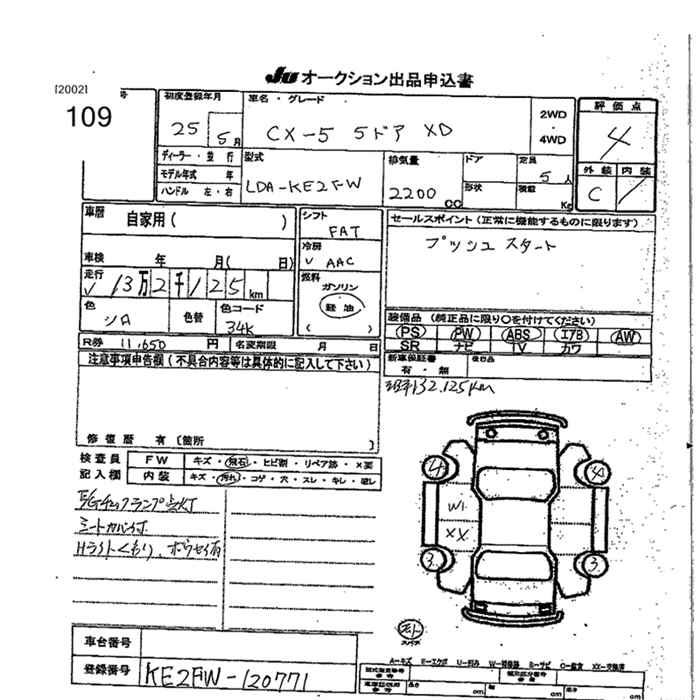 JU オークション出品申込書
[2002]
109
号
初度登録年月
車名・グレード
2WD
・
4WD
評価点
25 5月
CX-5 5ドア XD
4
ディーラー・並行
型式
排気量
ドア
定員
5人
外装 内装
モデル年式 年
ハンドル 左・右
LDA-KE2FW
2200 CC
形状
積載
Kg
C
車歴
自家用( )
シフト
FAT
セールスポイント(正常に機能するものに限ります)
プッシュスタート
車検 年 月( 日)
冷房
AAC
走行
13万2千125km
燃料
ガソリン
軽油
( )
色
シロ
色替
色コード
34K
装備品(純正品に限り○を付けてください)
PS PW ABS エアB AW
SR ナビ TV カワ
R券 11,650 円
名変期限 月 日
新車保証書
有・無
後日品
注意事項申告欄(不具合内容等は具体的に記入して下さい)
132.125km
修復歴 有〔箇所 〕
検査員
記入欄
FW
キズ・飛石・ヒビ割・リペア跡・X要
内装
キズ・汚れ・コゲ・穴・スレ・キレ・破レ
E/Gチェックランプ点灯
シートカバー付
Hライトくもり、
4
4
W1
XX
3
3
車台番号
登録番号
KE2FW-120771
A-キズ E-エクボ U-凹み W-補修跡 S-サビ C-腐食 XX-交換済
長さ cm
cm
cm